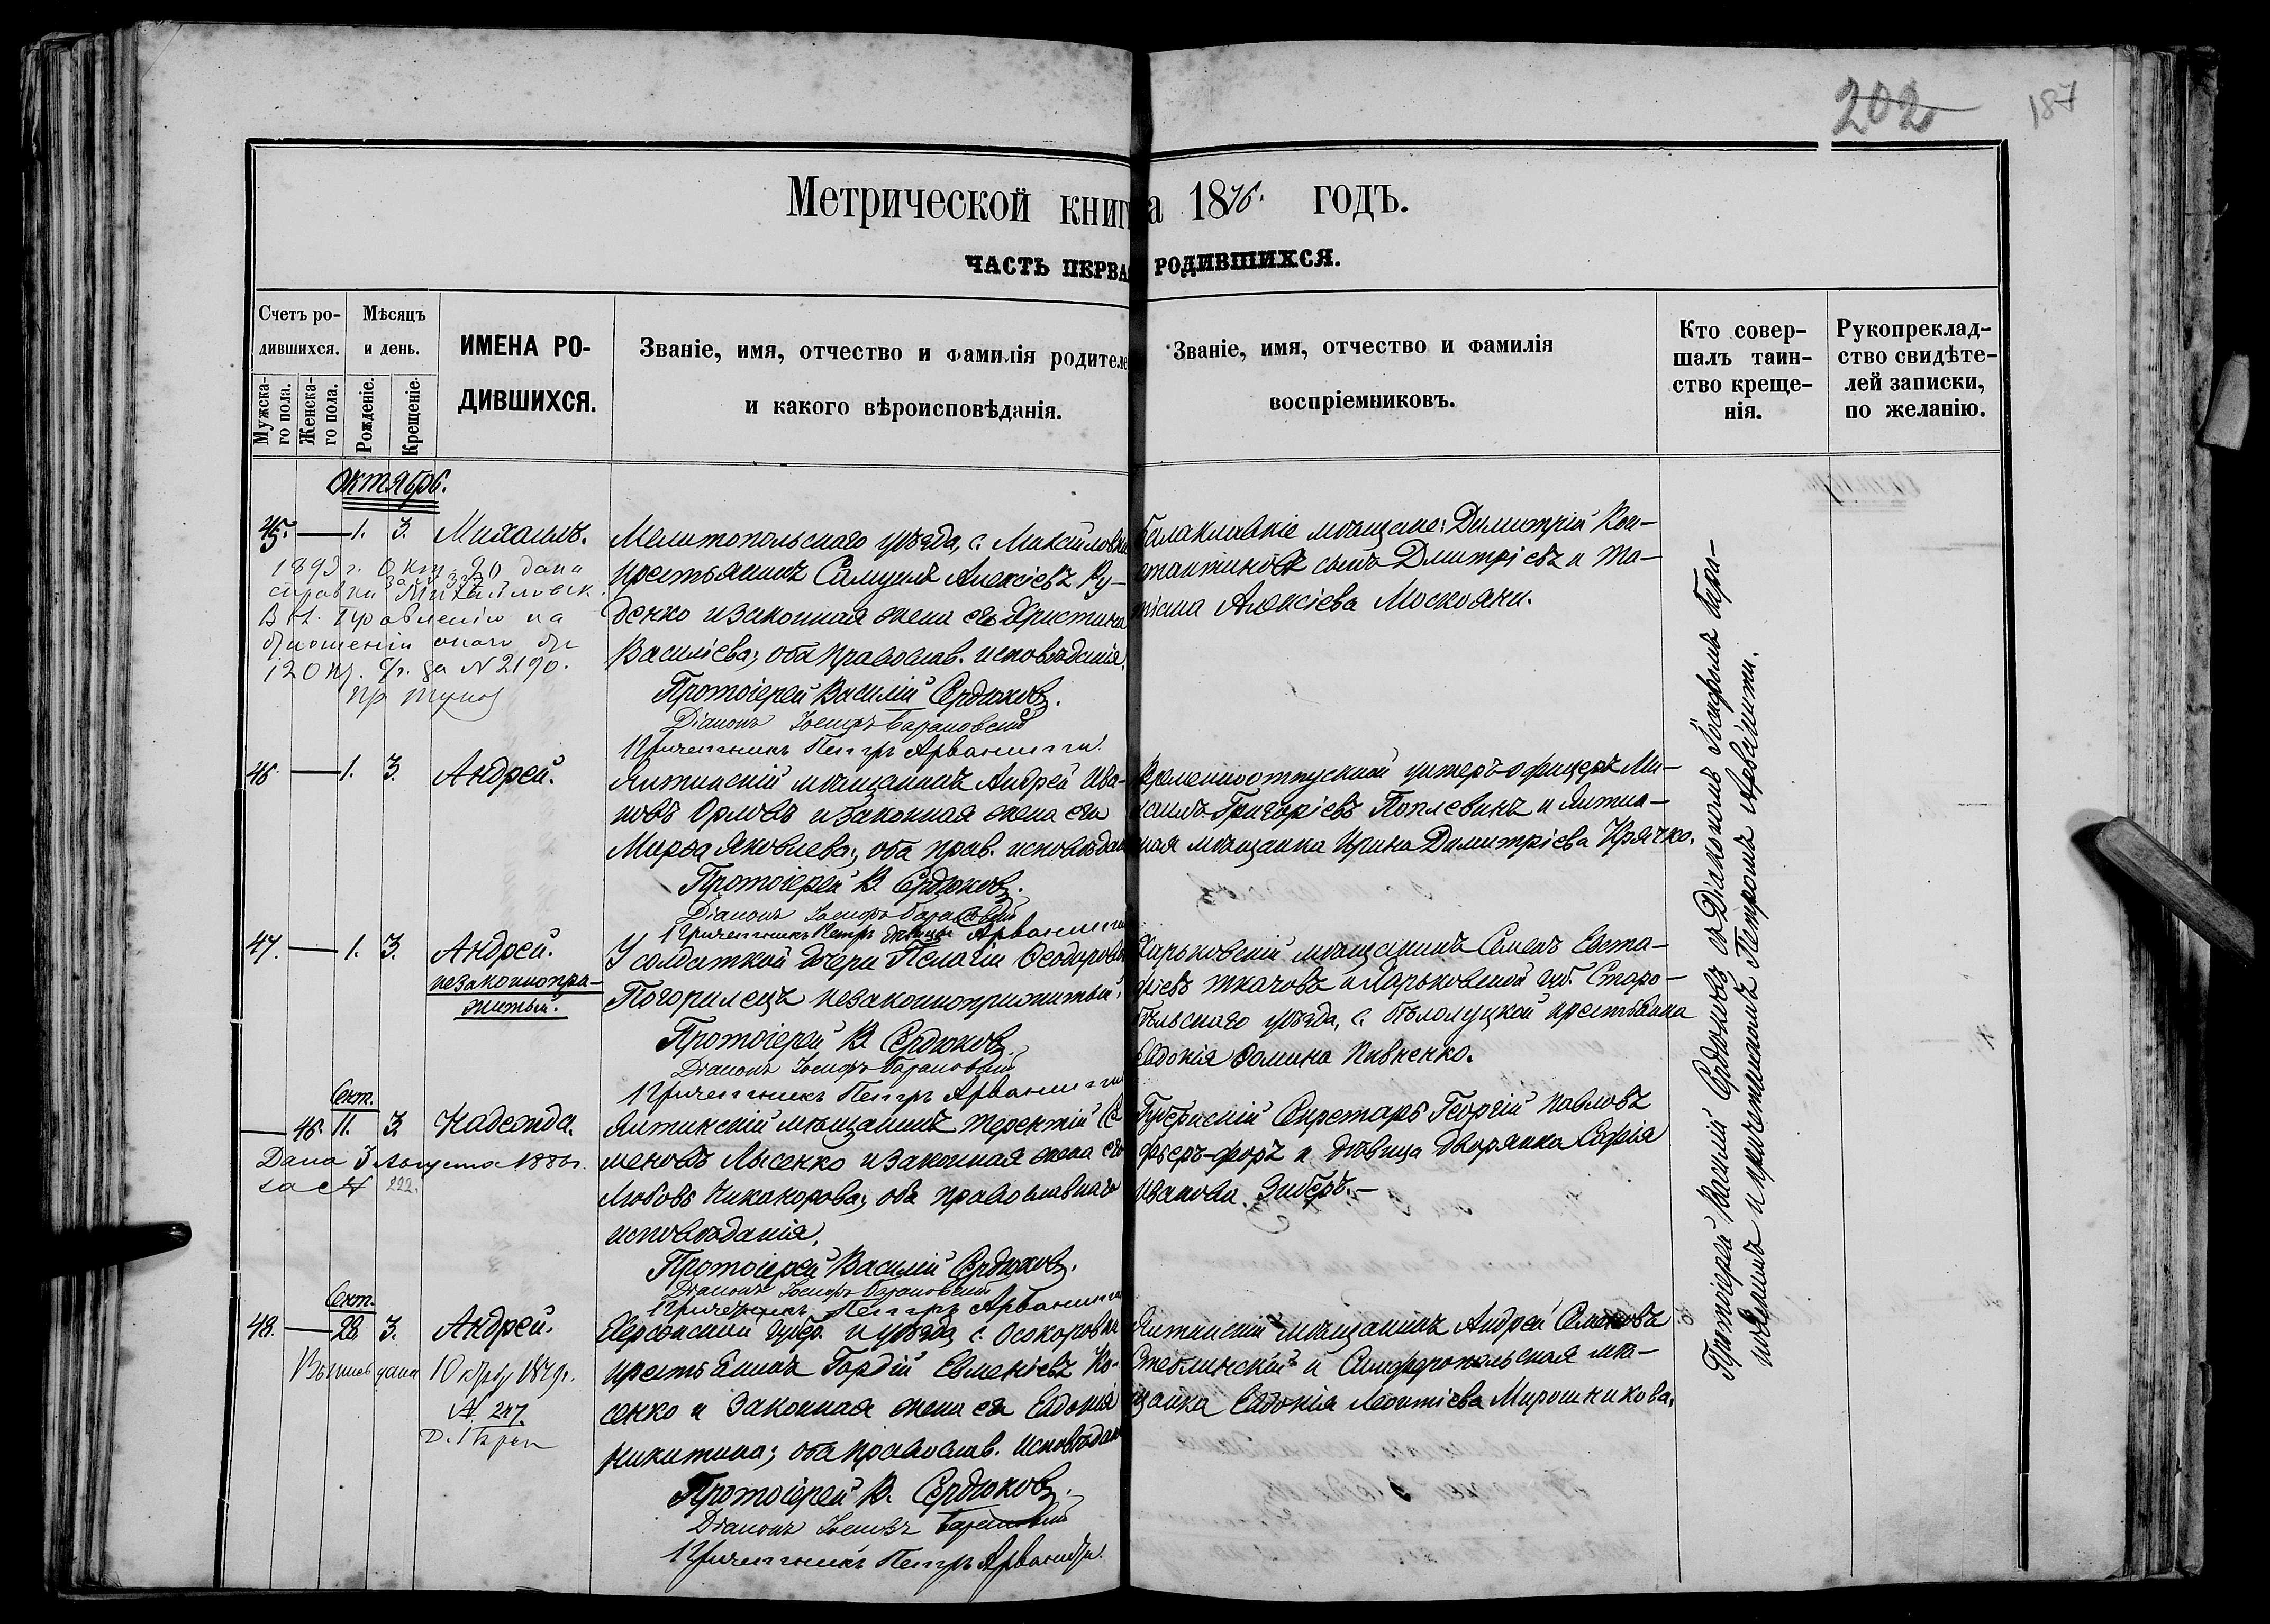 202
187
Метрической книги на 1876. годъ.
ЧАСТЬ ПЕРВАЯ РОДИВШИХСЯ.
Счетъ ро-
дившихся.
Мужска-
го пола.
Женска-
го пола.
Мѣсяцъ
и день.
Рожденіе.
Крещеніе.
ИМЕНА РО-
ДИВШИХСЯ.
Званіе, имя, отчество и фамилія родителе
и какого вѣроисповѣданія.
Званіе, имя, отчество и фамилія
воспріемниковъ.
Кто совер-
шалъ таин-
ство креще-
нія.
Рукоприклад-
ство свидѣте-
лей записки,
по желанію.
Октябрь.
45. — 1. 3. Михаилъ.
1893 г. Окт. 20 дана
справка Михайловск.
Вол. Правленію на
отношеніи онаго
за N 2190.
Мелитопольскаго уѣзда, с. Михайловки
крестьянинъ Самуилъ Алексіевъ Ру-
денко и законная жена его Христина
Василіева; оба православ. исповѣданія.
Протоіерей Василій Сердюковъ.
Діаконъ Іосифъ Барановскій
Причетникъ Петръ Арванити.
Балаклавскіе мѣщане: Димитрій Кон-
стантиновъ сынъ Дмитріевъ и Та-
тіана Алексіева Москояни.
46. — 1. 3. Андрей.
Ялтинскій мѣщанинъ Андрей Ива-
новъ Орловъ и законная жена его
Марѳа Яковлева; оба прав. исповѣдан
Протоіерей В. Сердюковъ.
Діаконъ Іосифъ Барановскій
Причетникъ Петръ Арванити
Временноотпускной унтеръ-офицеръ Ми-
хаилъ Григоріевъ Поплевинъ и Ялтин-
ская мѣщанка Ирина Димитріева Крячко.
47. — 1. 3. Андрей.
незаконнопри-
житый.
У солдатской дочери Пелагіи Ѳеодоровой
Погорилецъ незаконноприжитый.
Протоіерей В. Сердюковъ.
Діаконъ Іосифъ Барановскій
Причетникъ Петръ Арванити
Харьковскій мѣщанинъ Семенъ Евста-
фіевъ Ткачовъ и Харьковской губ. Старо-
бѣльскаго уѣзда, с. Бѣлолуцкой крестьянка
Евдокія Ѳомина Пивненко.
Сент.
— 48. 11. 3. Надежда.
Дана 3 Августа 1886 г.
за N 222.
Ялтинскій мѣщанинъ Терентій Се
меновъ Лысенко и законная жена его
Любовь Никанорова; оба православнаго
исповѣданія.
Протоіерей Василій Сердюковъ.
Діаконъ Іосифъ Барановскій
Причетникъ Петръ Арванити
Губернскій Секретарь Георгій Павловъ
и дѣвица дворянка Софія
Иванова Зиберъ. —
Сент.
48. — 28. 3. Андрей.
1879 г.
N. 247.
Херсонской губер. и уѣзда с. Осокоровки
крестьянинъ Гордій Евменіевъ Ко-
сенко и законная жена его Евдокія
Никитина; оба православ. исповѣдан
Протоіерей В. Сердюковъ.
Діаконъ Іосифъ Барановскій
Причетникъ Петръ Арванити.
Ялтинскій мѣщанинъ Андрей Семеновъ
Стеблинскій и Симферопольская мѣ-
щанка Евдокія Леонтіева Мирошникова.
Протоіерей Василій Сердюковъ съ Діакономъ Іосифомъ Бара-
новскимъ и причетникомъ Петромъ Арванити.